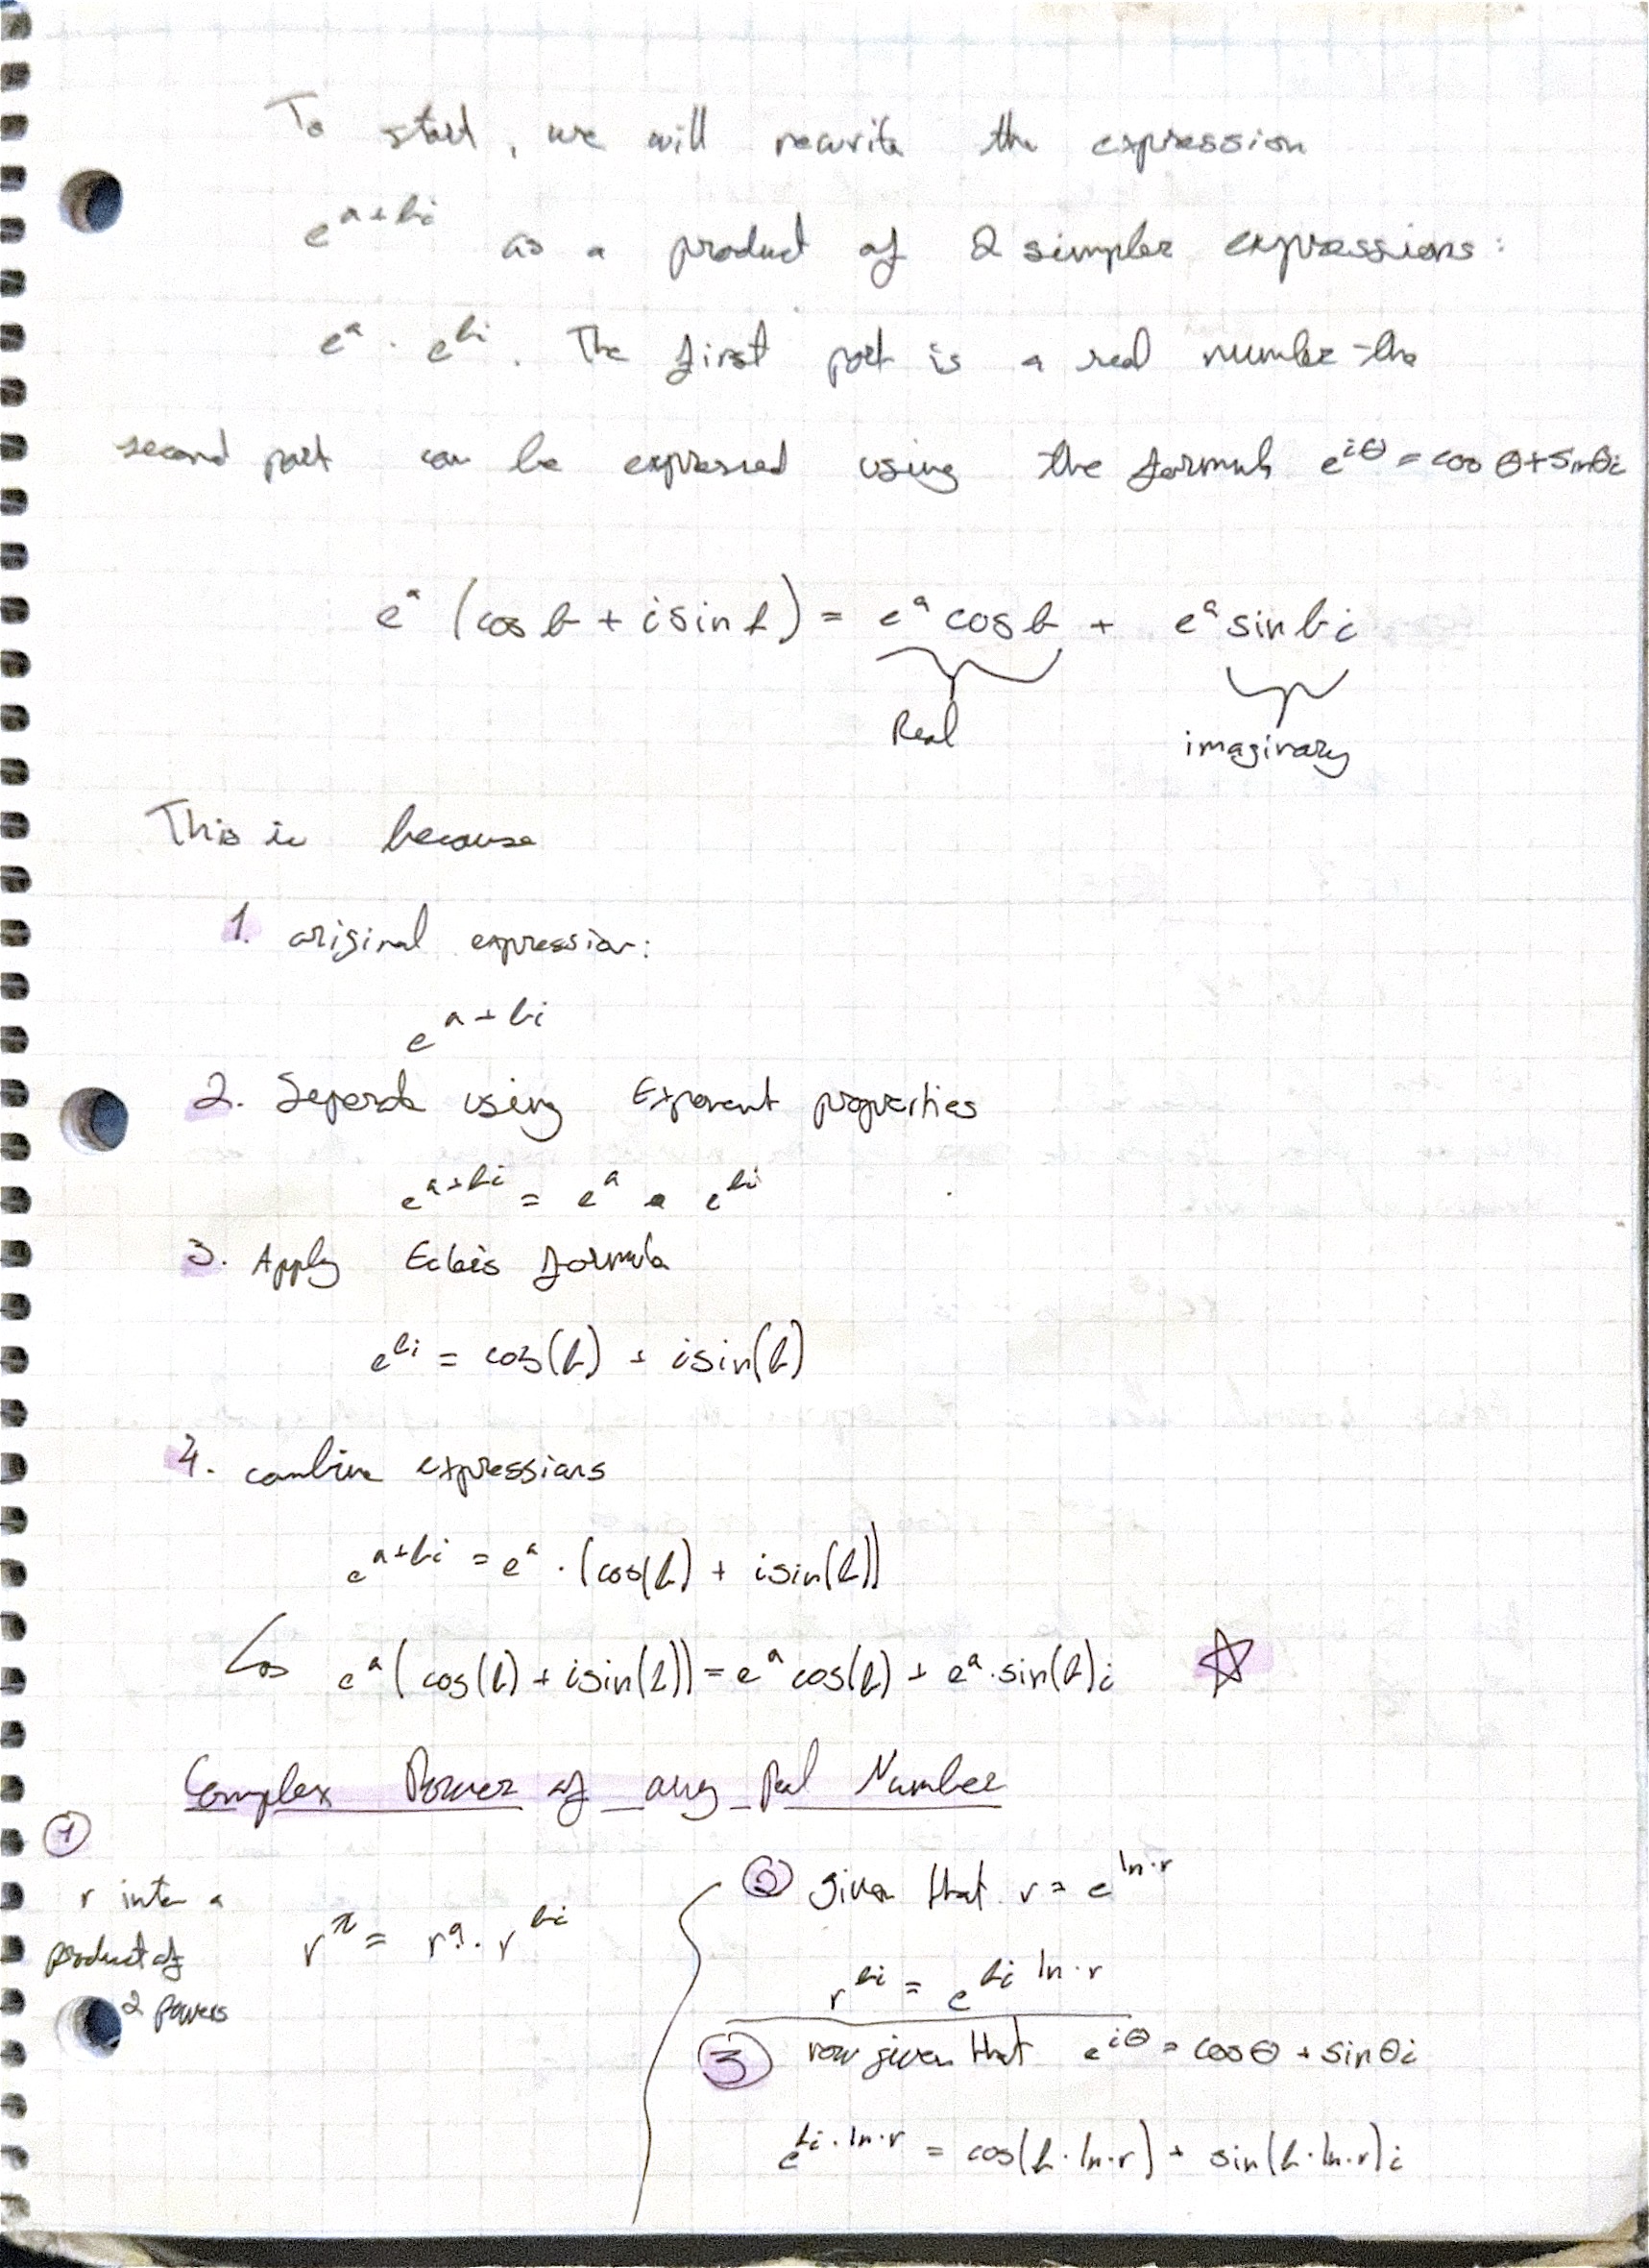 To start, we will rewrite the expression
e^{a+bi} as a product of 2 simpler expressions:
e^a · e^{bi}. The first part is a real number - the
second part can be expressed using the formula e^{iθ} = cos θ + sinθi
e^a (cos b + i sin b) = e^a cos b + e^a sin b i
Real
imaginary
This is because
1. original expression:
e^{a+bi}
2. Seperate using Exponent properties
e^{a+bi} = e^a · e^{bi}
3. Apply Euler's formula
e^{bi} = cos(b) + isin(b)
4. combine expressions
e^{a+bi} = e^a · (cos(b) + isin(b))
e^a (cos(b) + isin(b)) = e^a cos(b) + e^a · sin(b)i
Complex Power of any Real Number
①
r into a
product of
2 powers
r^z = r^a · r^{bi}
② given that r = e^{ln·r}
r^{bi} = e^{bi ln·r}
③ now given that e^{iθ} = cosθ + sinθi
e^{bi·ln·r} = cos(b·ln·r) + sin(b·ln·r)i